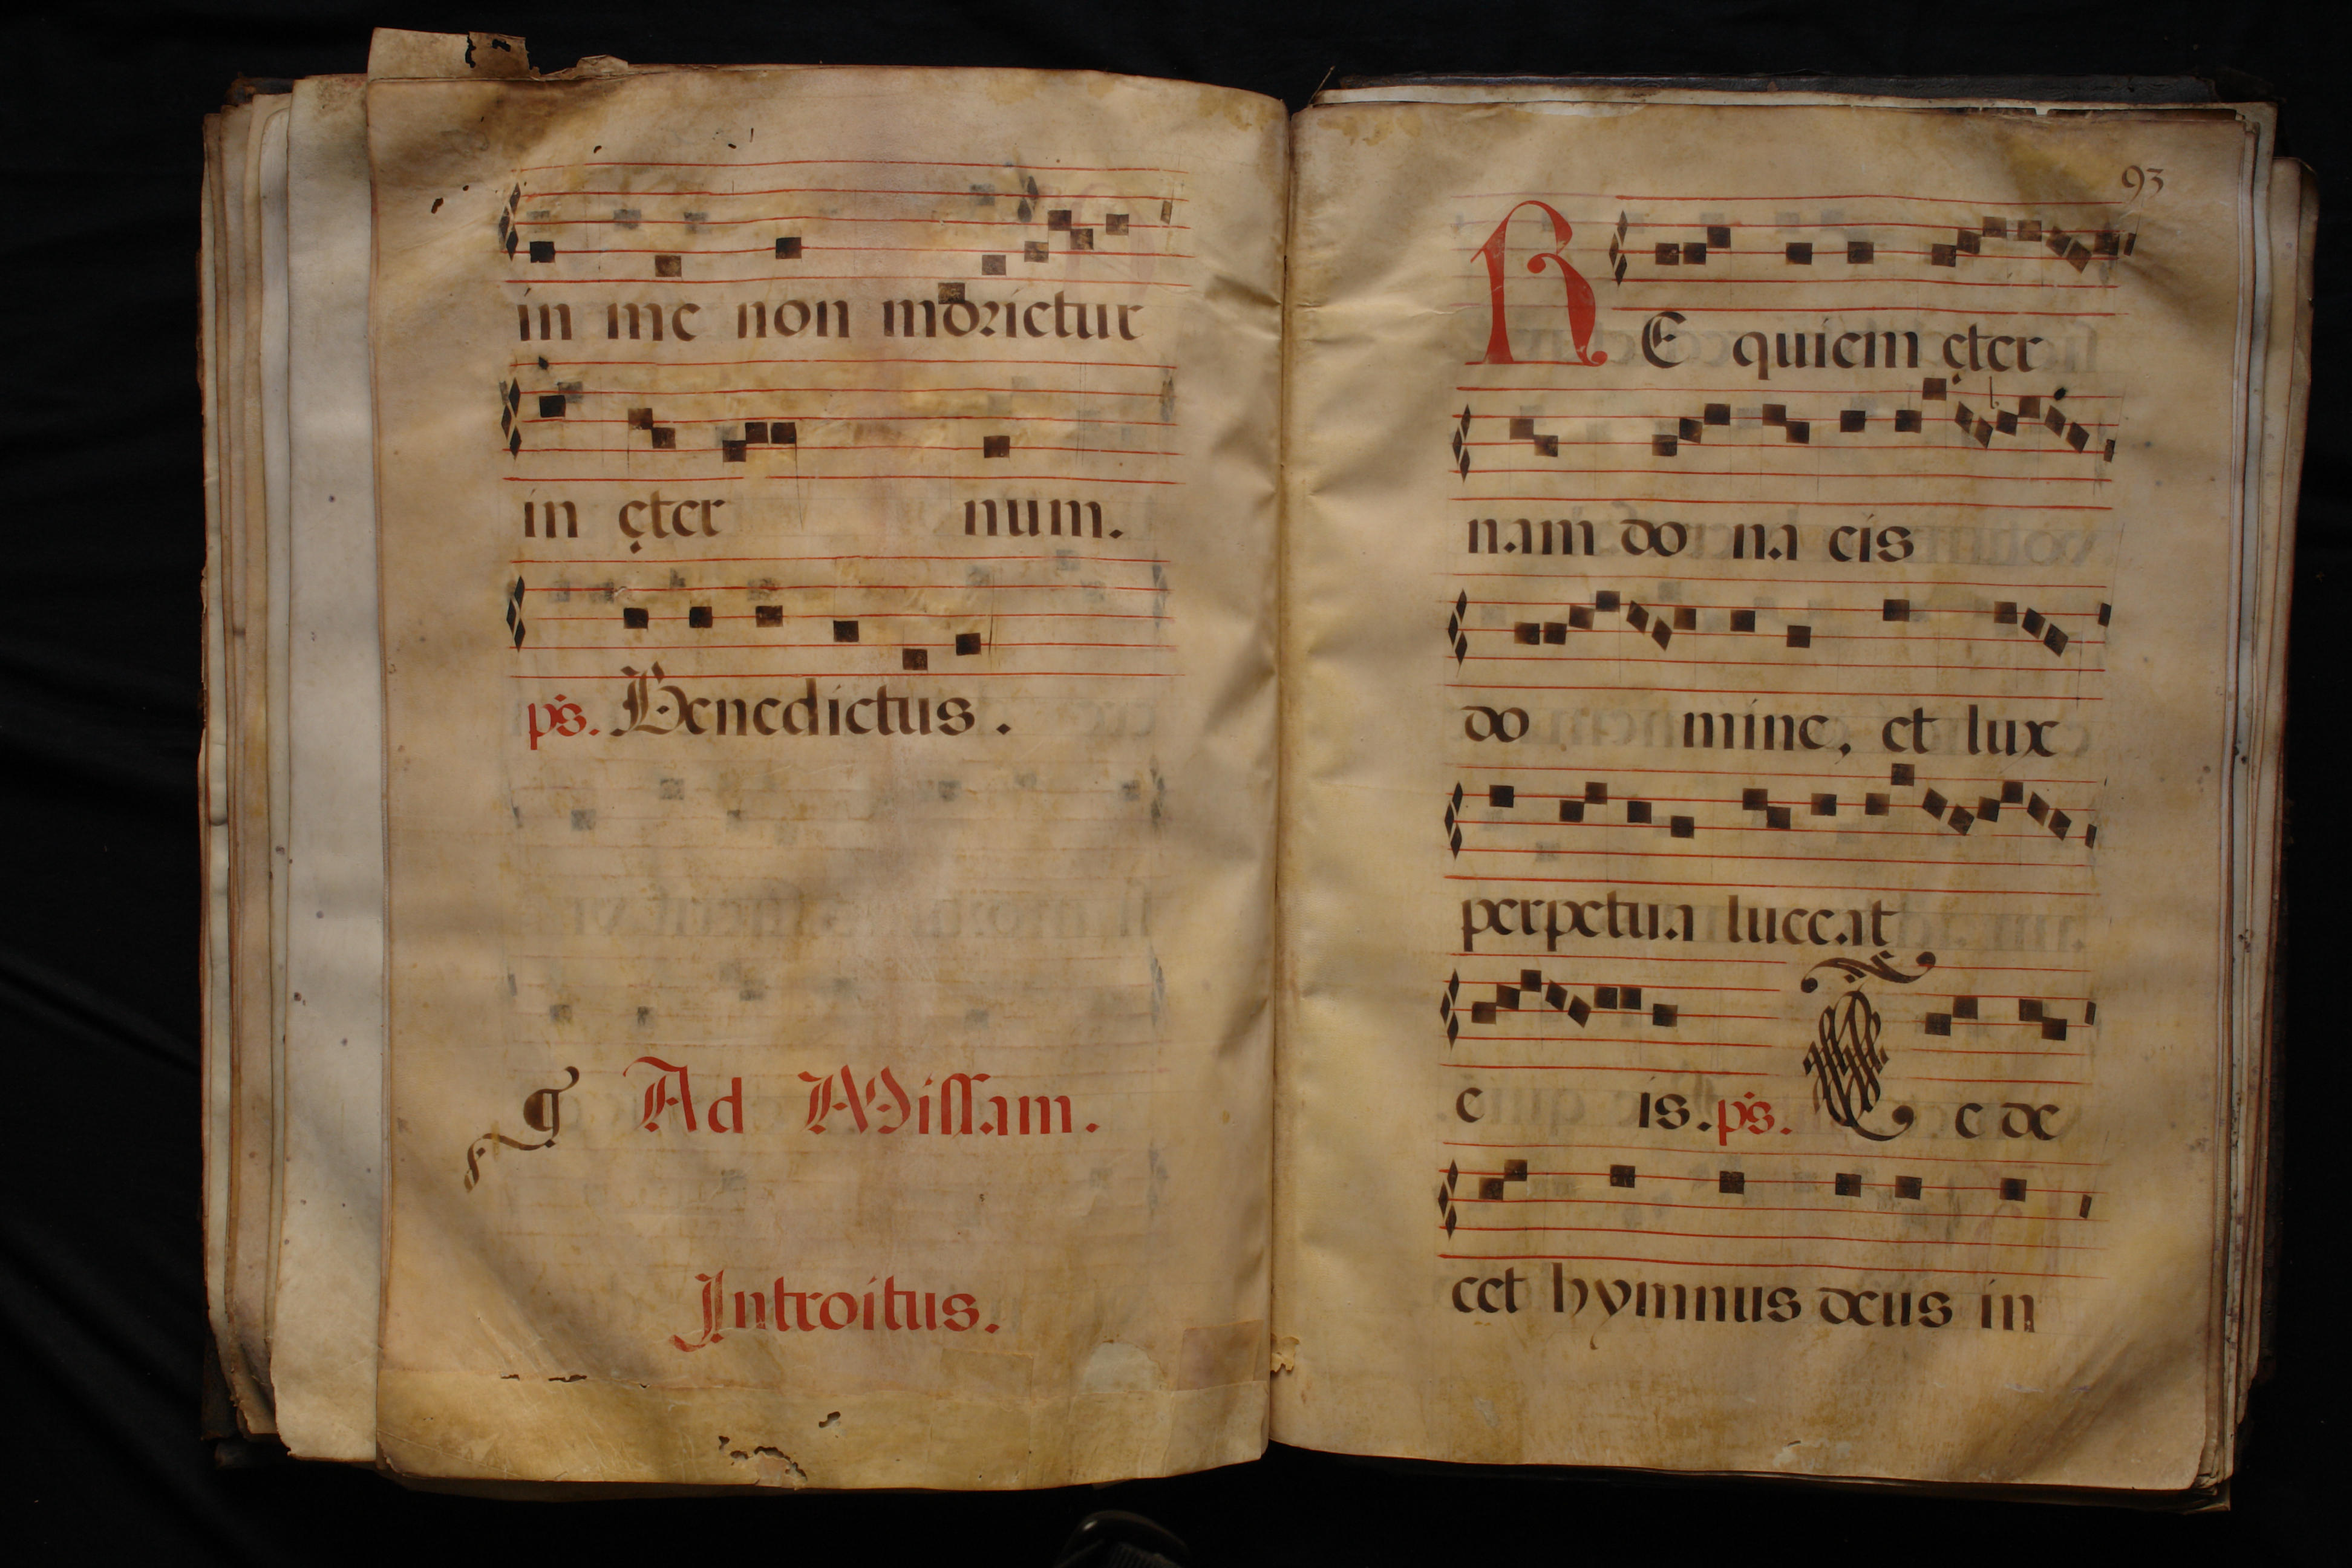 in me non morietur
in ęter num.
ps. Benedictus.
¶ Ad Missam.
Introitus.
93
RE quiem ęter
nam do na eis
do mine, et lux
perpetua luceat
e is. ps. Te de
cet hymnus deus in